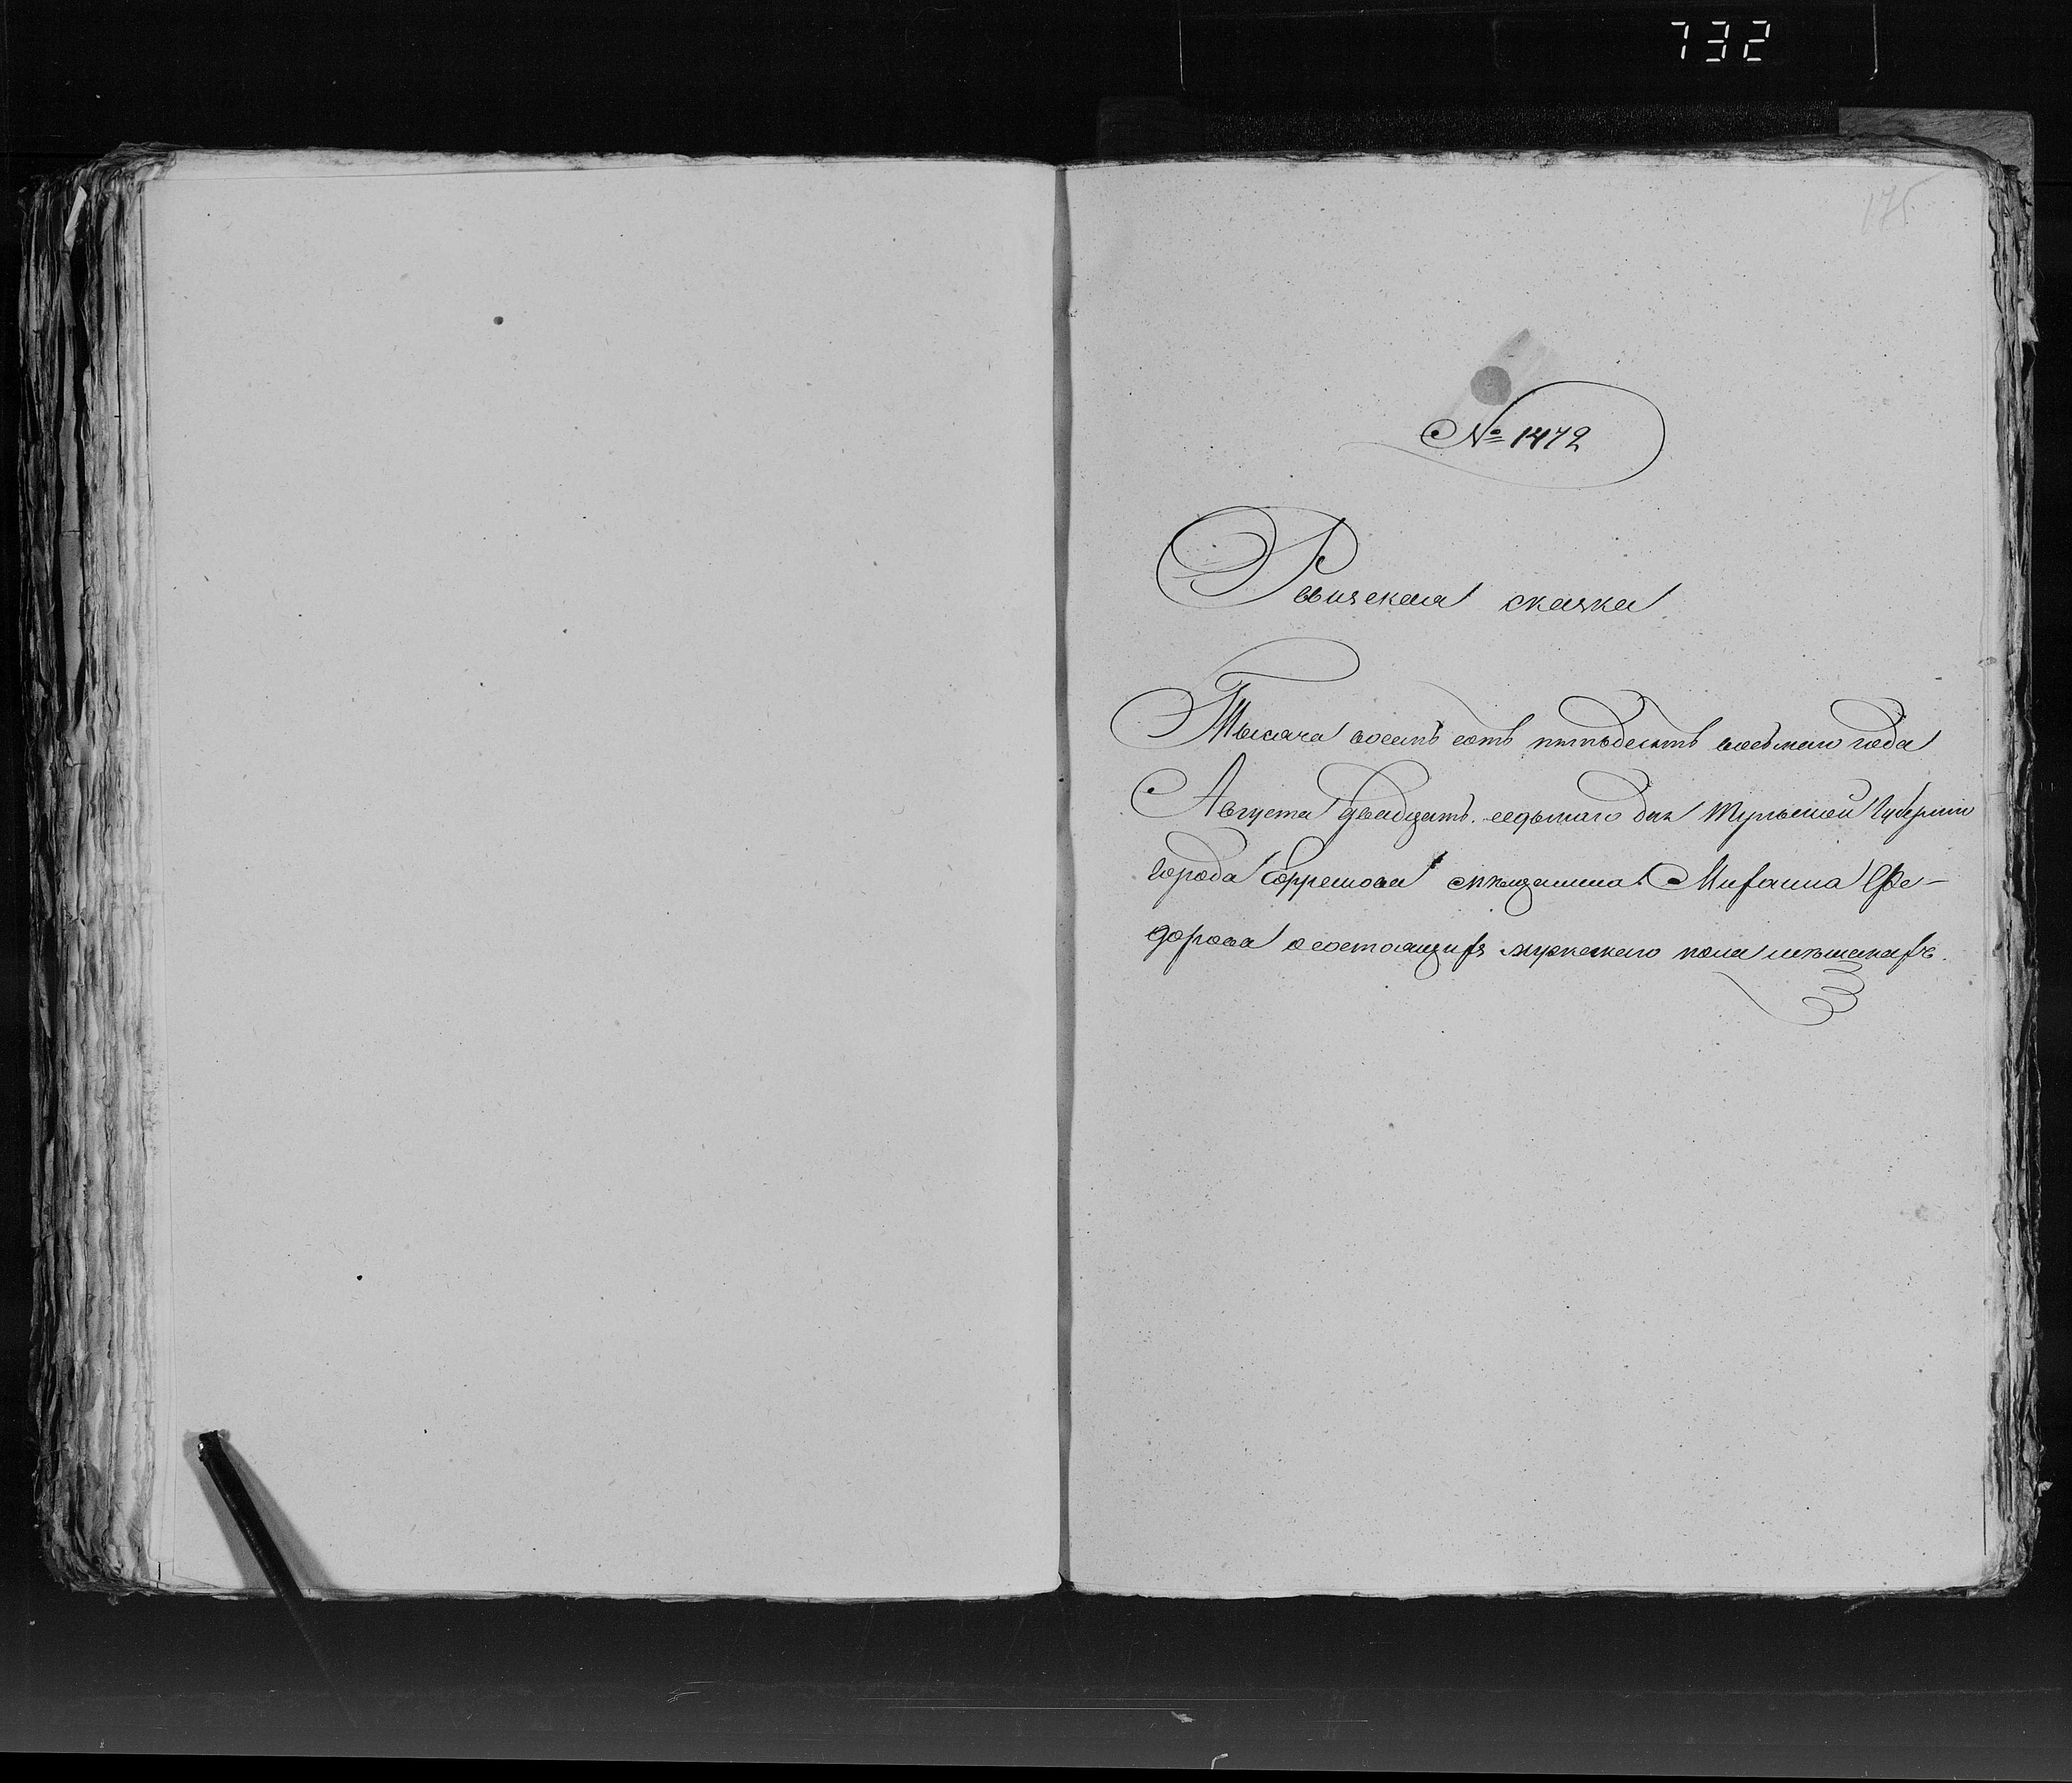 732
175
№ 1472
Ревизская сказка
Тысяча восемь сотъ пятьдесятъ восьмаго года
Августа двадцать седьмаго дня Тульской Губернии
города Ефремова мѣщанина Михаила Фе-
дорова о состоящихъ мужескаго пола мѣщанахъ.